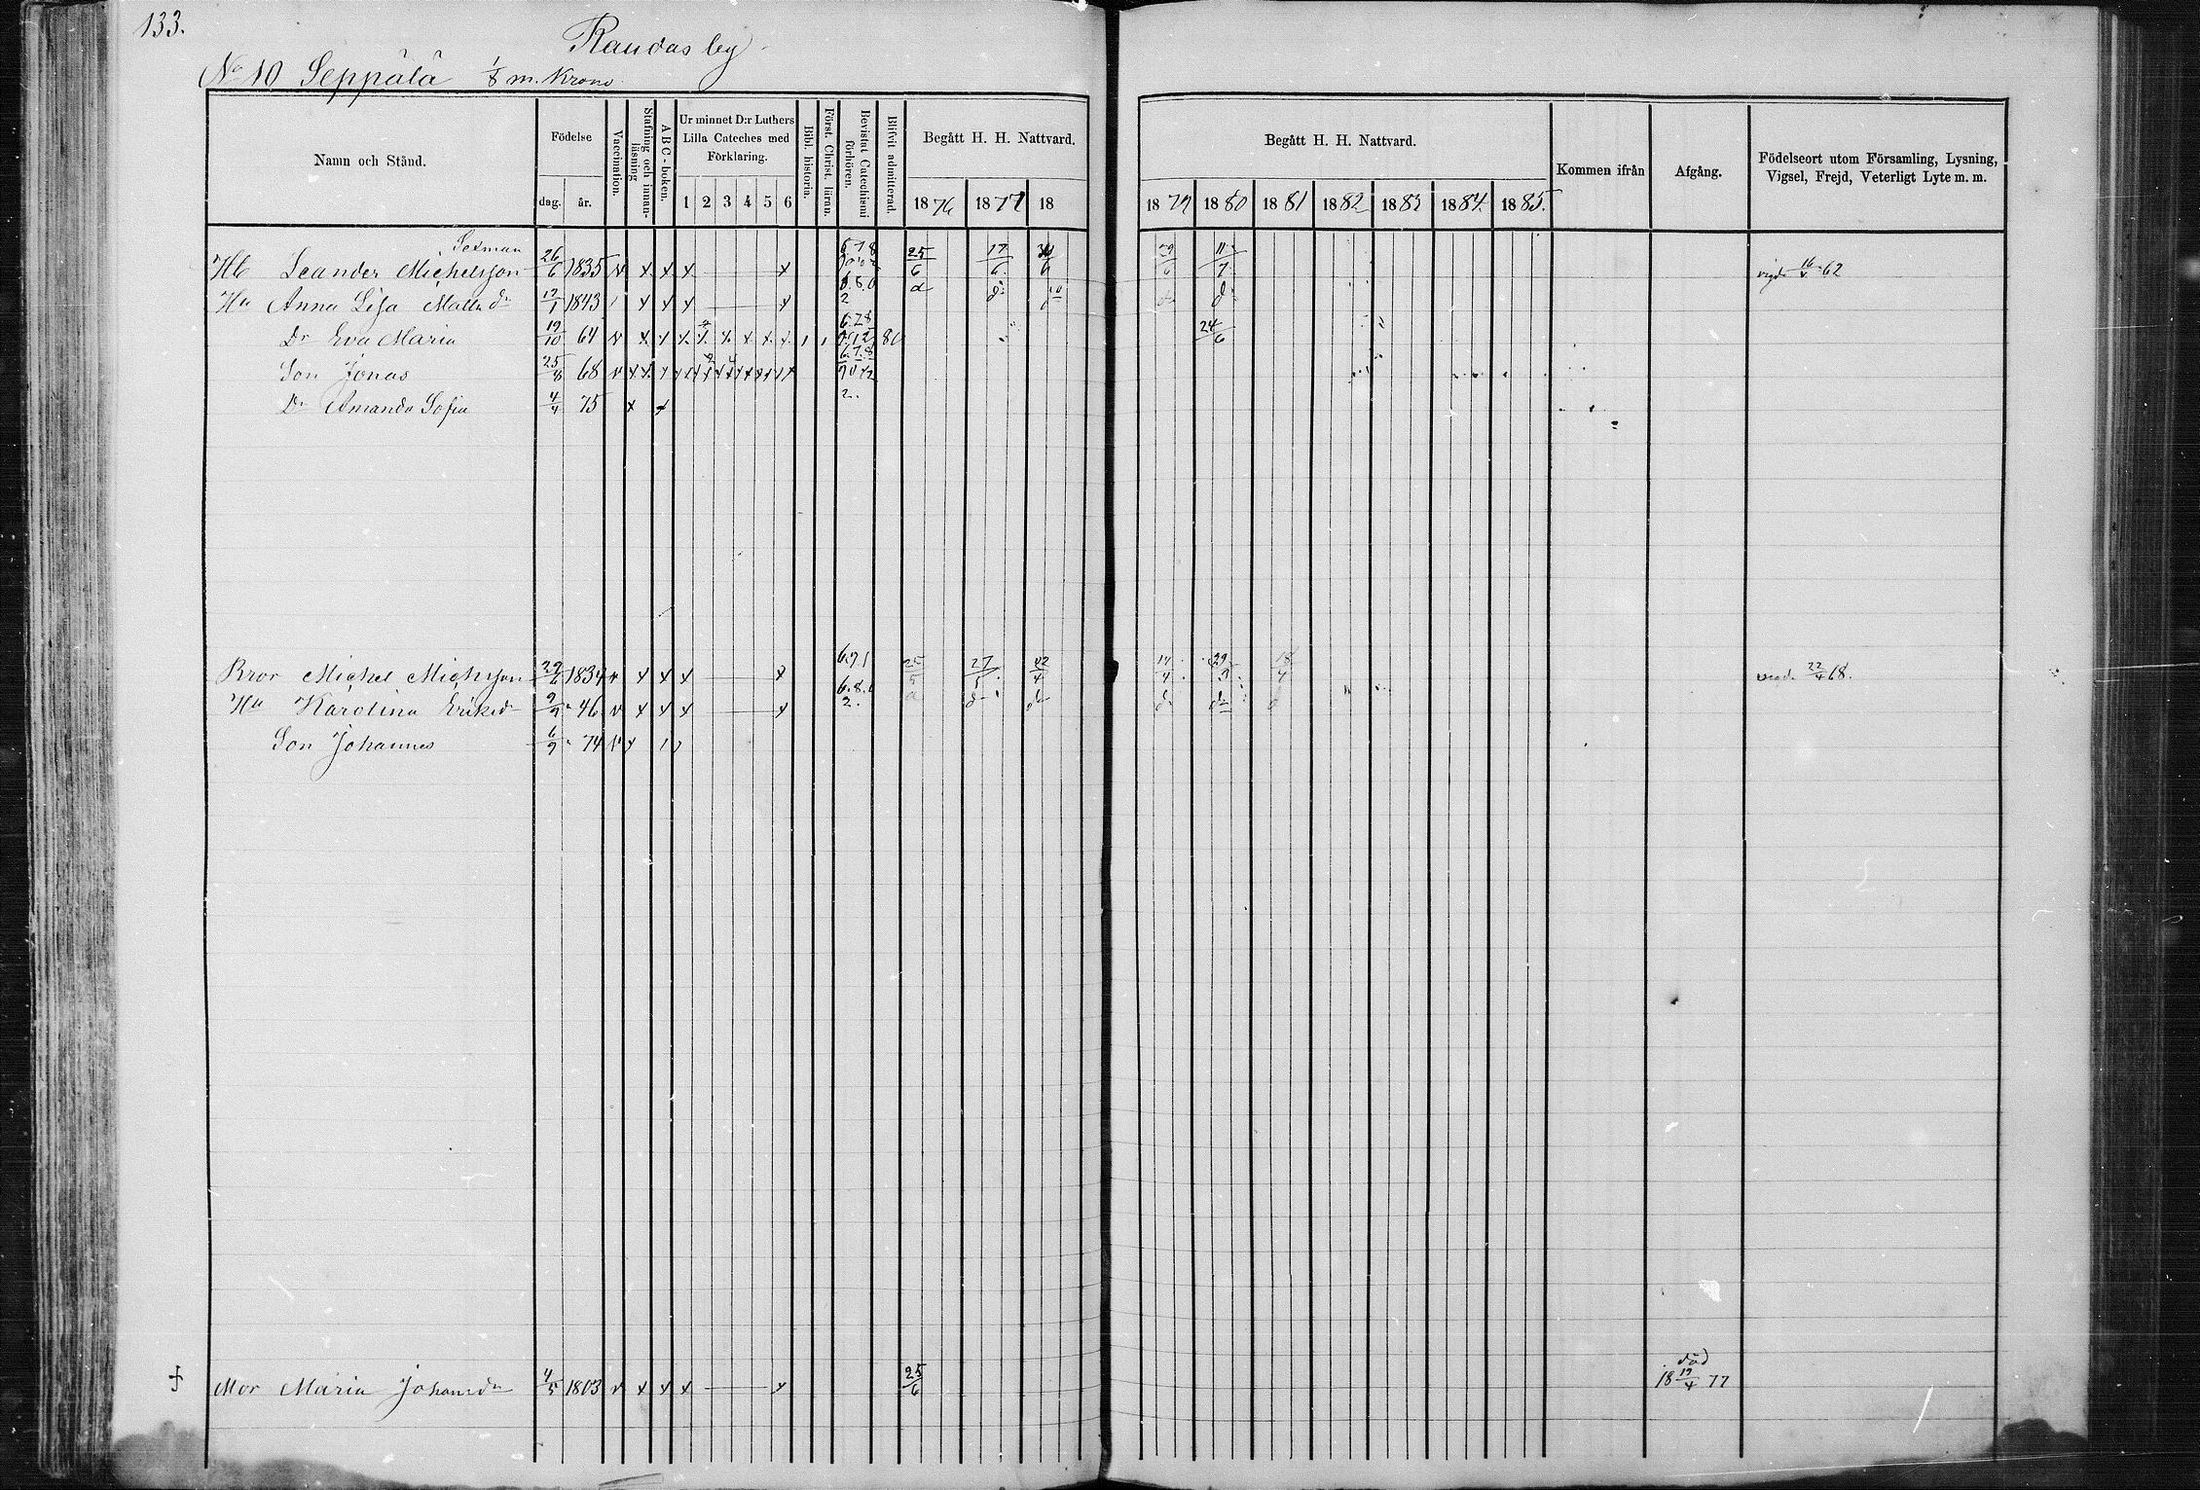 133.
Raudas by
No 10 Seppälä 1/8 m. Krono
Namn och Stånd. Födelse dag. år. Vaccination. Stafning och innanläsning A B C-boken. Ur minnet D:r Luthers Lilla Cateches med Förklaring. 1 2 3 4 5 6 Bibl. historia. Först. Christ. läran. Bevistat Catechismi förhören. Blifvit admitterad. Begått H. H. Nattvard. 1876 1877 18
Begått H. H. Nattvard. 1879 1880 1881 1882 1883 1884. 1885. Kommen ifrån Afgång. Födelseort utom Församling, Lysning, Vigsel, Frejd, Veterligt Lyte m. m.
Sexman
Hb Leander Michelsson 26/6 1835 v x x x x 25/6 17/6 29/6 11/7 62
Hu Anna Lisa Matts dr 17/1 1843 x x x x 2
Dr Eva Maria 19/10 64 v x x 80 24/6
Son Jonas 25/8 68 v
Dr Amanda Sofia 4/4 75 x x 2.
Bror Michel Michsson 29/6 1834 v x x x x 25/5 27/5 22/4 14/4 29/3 18/4 22/4 68.
Hu Karolina Eriksdr 9/9 46 v x x x x 2.
Son Johannes 6/9 74 v
Mor Maria Johansdr 4/5 1803 v x x x x 25/6 död 18 19/4 77